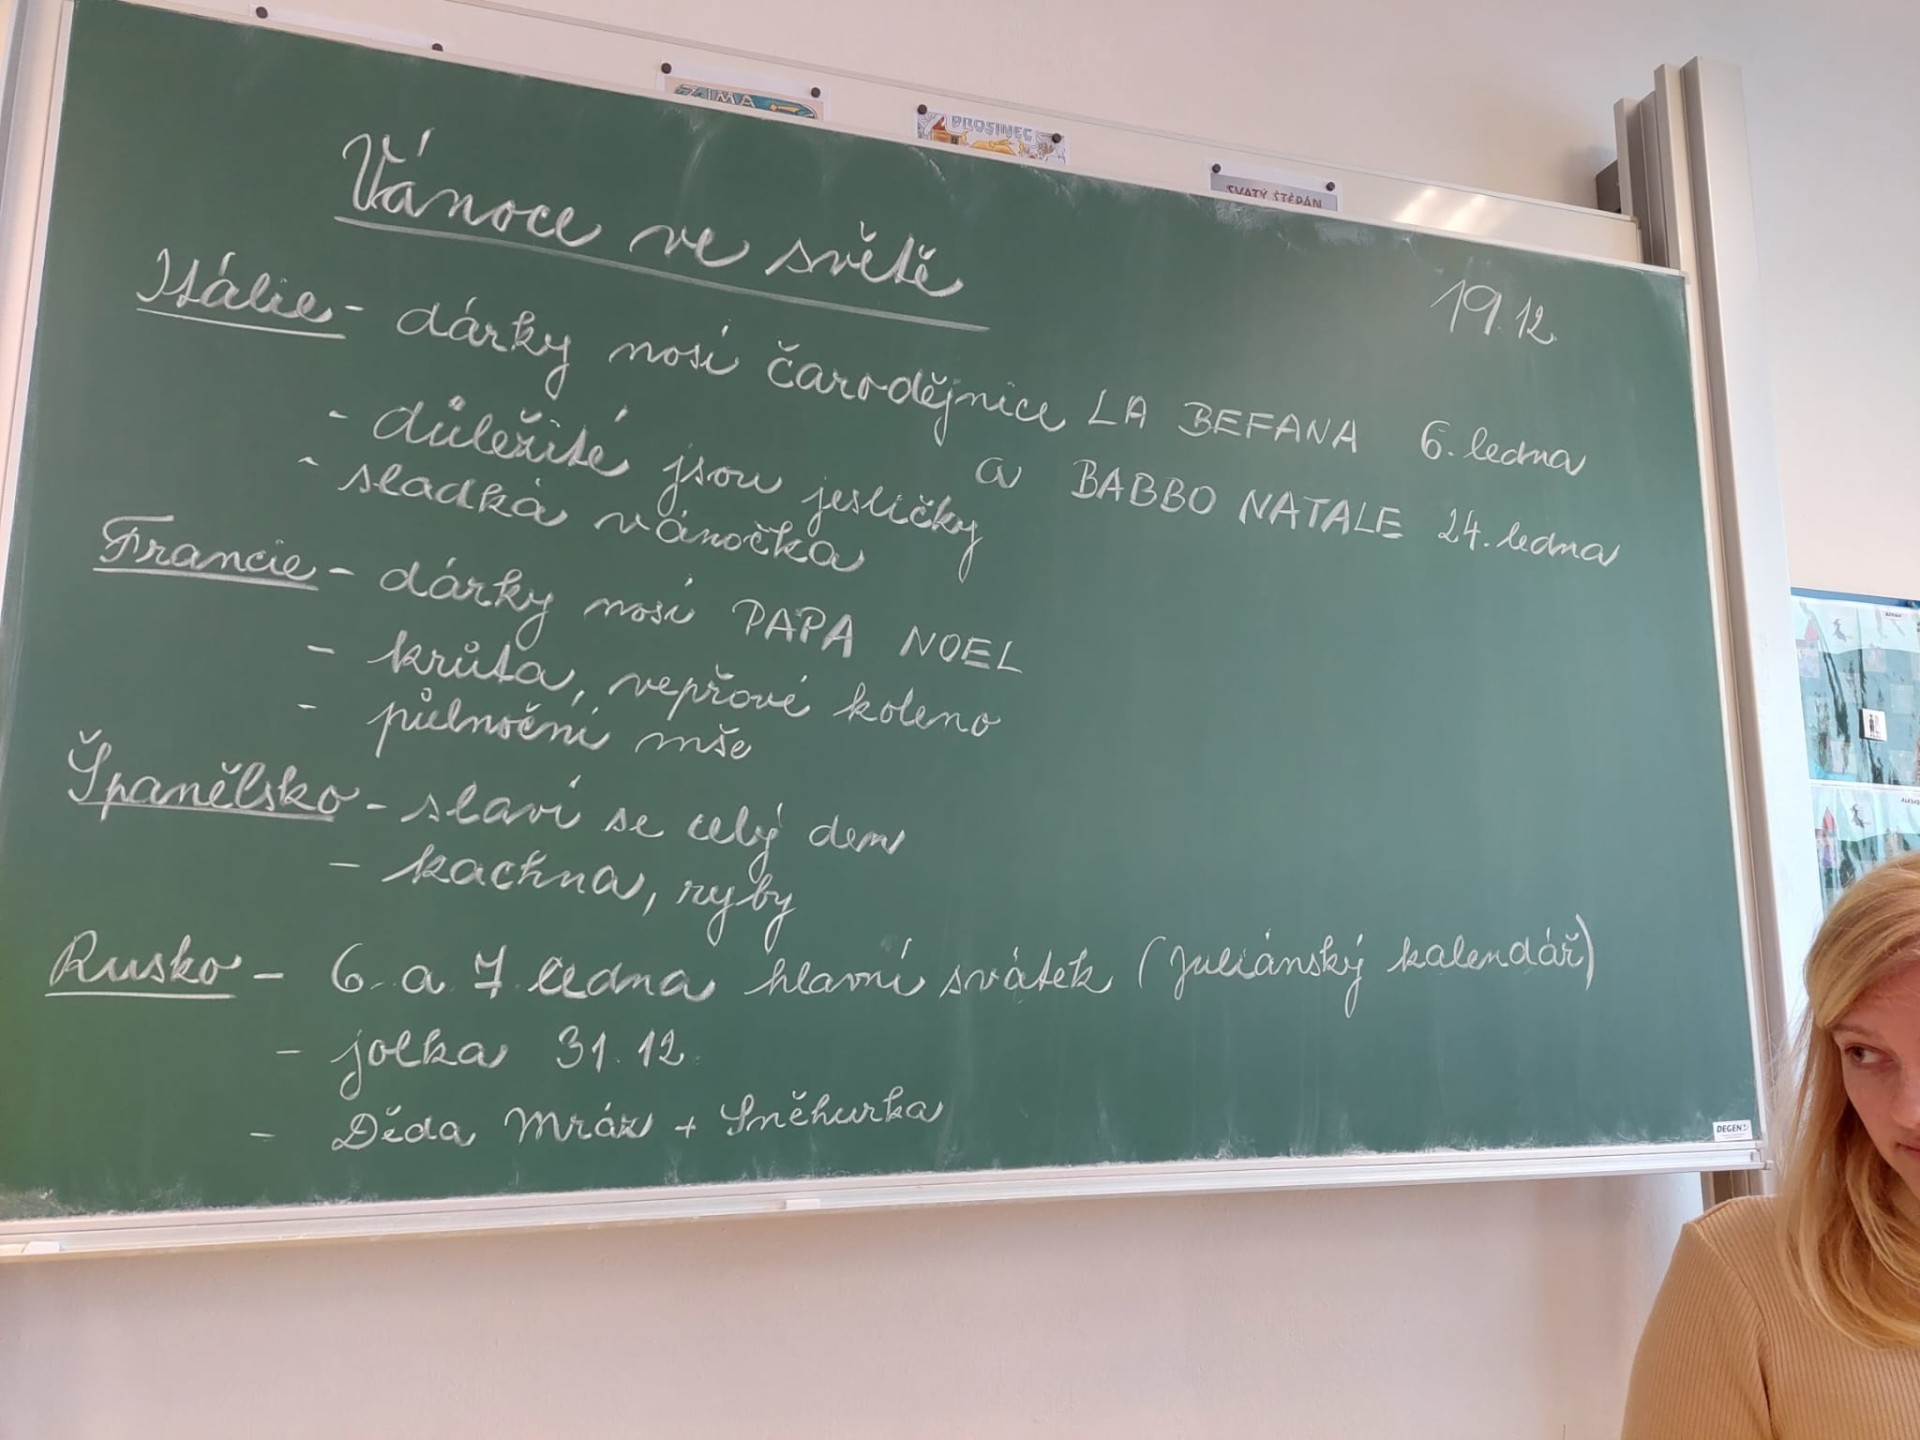 ZIMA
PROSINEC
SVATÝ ŠTĚPÁN
Vánoce ve světě
19.12.
Itálie - dárky nosí čarodějnice LA BEFANA 6. ledna
a BABBO NATALE 24. ledna
- důležité jsou jesličky
- sladká vánočka
Francie - dárky nosí PAPA NOEL
- krůta, vepřové koleno
- půlnoční mše
Španělsko - slaví se celý den
- kachna, ryby
Rusko - 6. a 7. ledna hlavní svátek (juliánský kalendář)
- jolka 31.12.
- Děda Mráz + Sněhurka
DEGEN